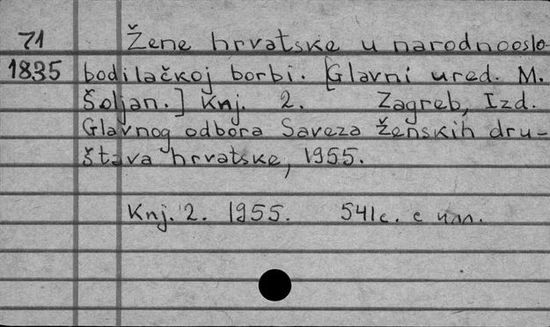 71 Žene hrvatske u narodnooslo
1835 bodilačkoj borbi. [Glavni ured. M.
Šoljan.] Knj. 2. Zagreb, Izd.
Glavnog odbora Saveza ženskih dru-
štava hrvatske, 1955.
Knj. 2. 1955. 541c. с илл.